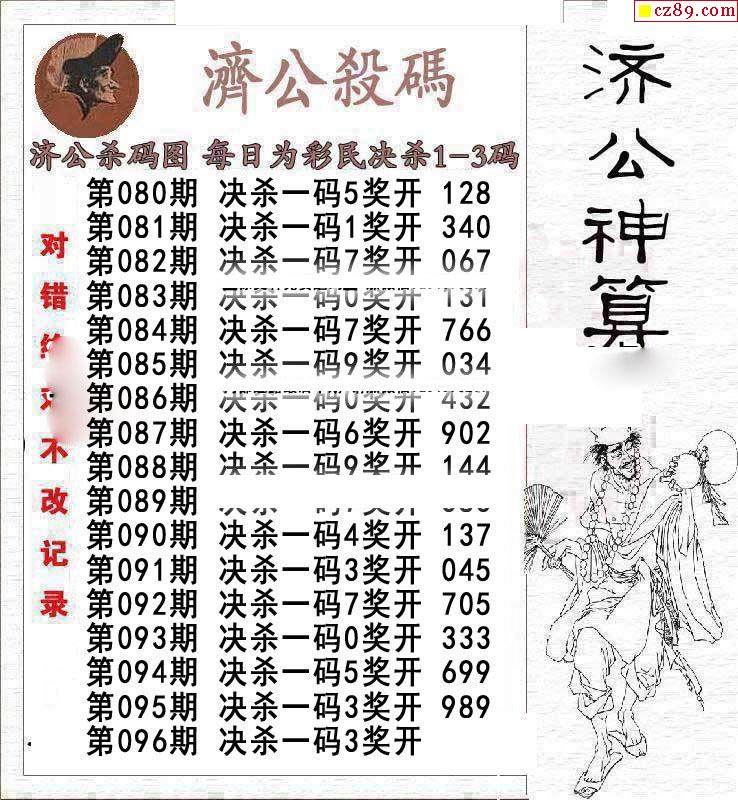 cz89.com
濟公殺碼
济公杀码图 每日为彩民决杀1-3码
第080期 决杀一码5奖开 128
第081期 决杀一码1奖开 340
第082期 决杀一码7奖开 067
第083期 决杀一码0奖开 131
第084期 决杀一码7奖开 766
第085期 决杀一码9奖开 034
第086期 决杀一码0奖开 432
第087期 决杀一码6奖开 902
第088期 决杀一码9奖开 144
第089期
第090期 决杀一码4奖开 137
第091期 决杀一码3奖开 045
第092期 决杀一码7奖开 705
第093期 决杀一码0奖开 333
第094期 决杀一码5奖开 699
第095期 决杀一码3奖开 989
第096期 决杀一码3奖开
对错 不改记录
济公神算